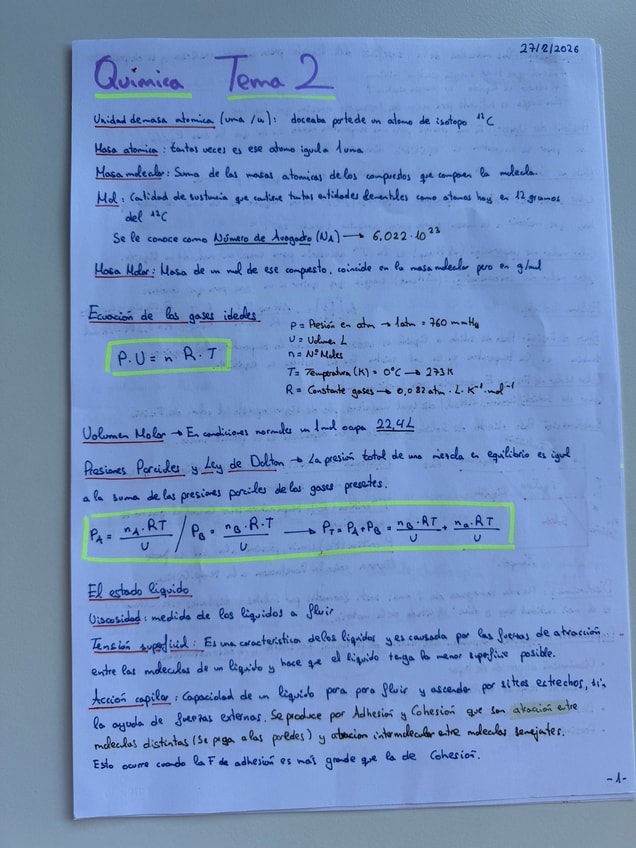 27/2/2026
Química Tema 2
Unidad de masa atomica (uma /u): doceaba parte de un atomo de isotopo ¹²C
Masa atomica : tantas veces es ese atomo igual a 1 uma
Masa molecular : Suma de las masas atomicas de los compuestos que componen la molecula.
Mol : Cantidad de sustancia que contiene tantas entidades elementales como atomos hay en 12 gramos
del ¹²C
Se le conoce como Número de Avogadro (NA) → 6,022·10²³
Masa Molar : Masa de un mol de ese compuesto, coincide en la masa molecular pero en g/mol
Ecuación de los gases ideales
P·U = n R·T
P = Presión en atm → 1atm = 760 mmHg
U = Volumen L
n = Nº Moles
T = Temperatura (K) = 0°C → 273K
R = Constante gases → 0,082 atm · L · K⁻¹ · mol⁻¹
Volumen Molar → En condiciones normales un 1 mol ocupa 22,4L
Presiones Parciales y Ley de Dalton → La presión total de una mezcla en equilibrio es igual
a la suma de las presiones parciales de los gases presentes.
PA = nA·RT/U / PB = nB·R·T/U → PT = PA + PB = nB·RT/U + na·RT/U
El estado líquido
Viscosidad : medida de los líquidos a fluir
Tensión superficial : Es una característica de los líquidos y es causada por las fuerzas de atracción
entre las moleculas de un líquido y hace que el líquido tenga la menor superficie posible.
Acción capilar : Capacidad de un líquido para para fluir y ascender por sitios estrechos, sin
la ayuda de fuerzas externas. Se produce por Adhesión y Cohesión que son atracción entre
moleculas distintas (Se pega a las paredes) y atracion intermolecular entre moleculas semejantes.
Esto ocurre cuando la F de adhesión es más grande que la de Cohesión.
-1-